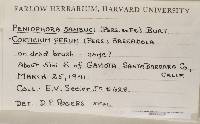 FARLOW HERBARIUM, HARVARD UNIVERSITY
PENIOPHORA SAMBUCI (PERS. ex Fr) BURT.
CORTICIUM SERUM (PERS) BRESADOLA
on dead brush -
About 5 mi N of GAVIOTA, SANTA BARBARA CO,
CALIF.
MARCH 25, 1941.
COLL: E.V. SEELER JR
DET: D.P. ROGERS